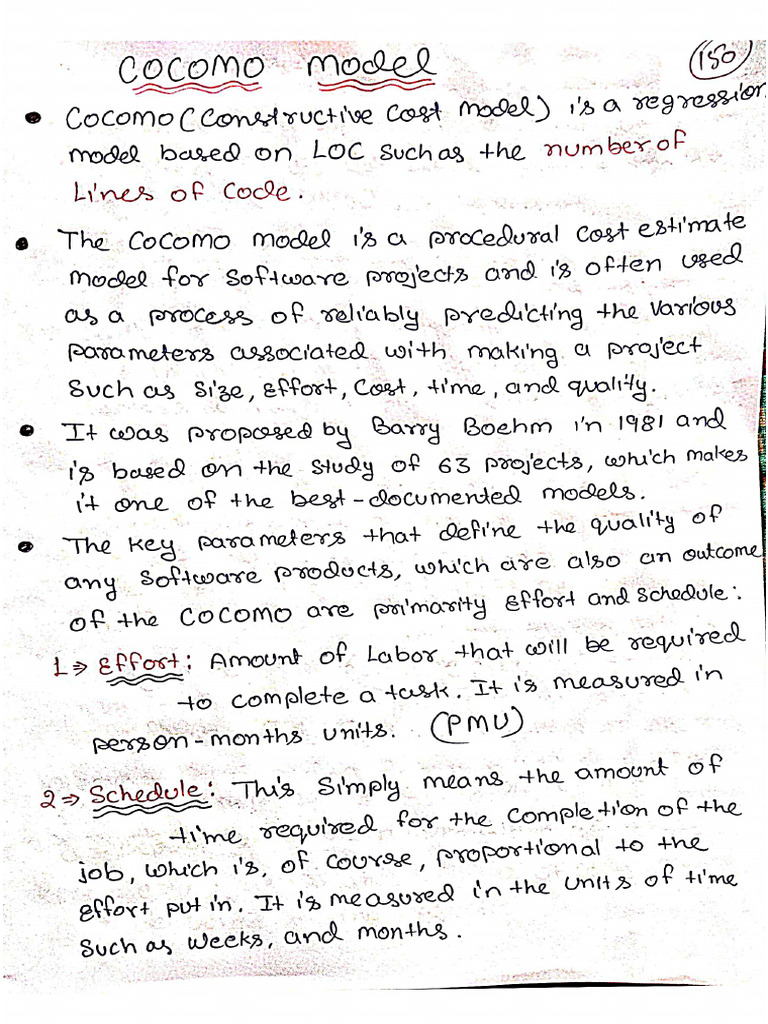 COCOMO Model
150
• COCOMO (Constructive Cost Model) is a regression
model based on LOC such as the number of
Lines of Code.
• The COCOMO model is a procedural cost estimate
model for software projects and is often used
as a process of reliably predicting the various
parameters associated with making a project
such as size, effort, cost, time, and quality.
• It was proposed by Barry Boehm in 1981 and
is based on the study of 63 projects, which makes
it one of the best-documented models.
• The key parameters that define the quality of
any software products, which are also an outcome
of the COCOMO are primarity Effort and Schedule:
1⇒ Effort: Amount of Labor that will be required
to complete a task. It is measured in
person-months units. (PMU)
2⇒ Schedule: This simply means the amount of
time required for the completion of the
job, which is, of course, proportional to the
effort put in. It is measured in the units of time
such as weeks, and months.